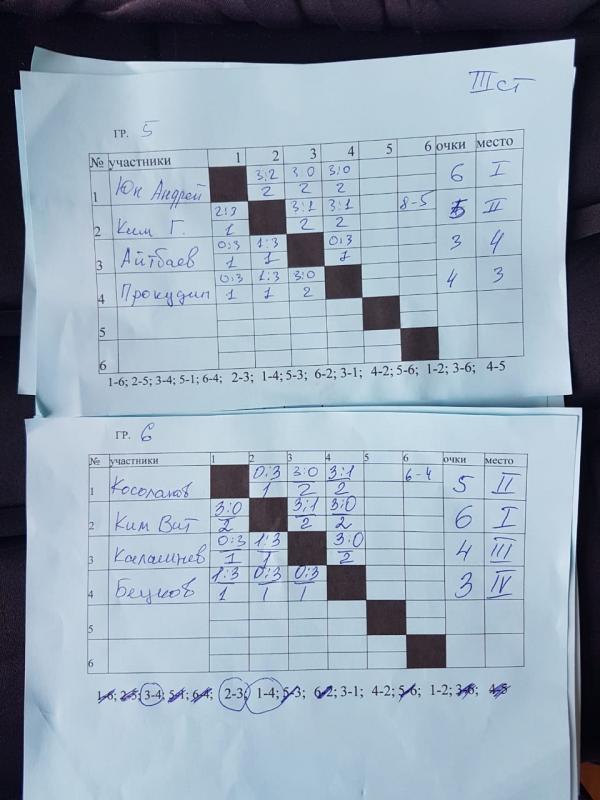 III ст
ГР. 5
№ участники 1 2 3 4 5 6 очки место
1 Юн Андрей 3:2 3:0 3:0 6 I
2 2 2
2 Ким Г. 2:3 3:1 3:1 8-5 5 II
1 2 2
3 Айтбаев 0:3 1:3 0:3 3 4
1 1 1
4 Прокудин 0:3 1:3 3:0 4 3
1 1 2
5
6
1-6; 2-5; 3-4; 5-1; 6-4; 2-3; 1-4; 5-3; 6-2; 3-1; 4-2; 5-6; 1-2; 3-6; 4-5
ГР. 6
№ участники 1 2 3 4 5 6 очки место
1 Косолапов 0:3 3:0 3:1 6-4 5 II
1 2 2
2 Ким Вит 3:0 3:1 3:0 6 I
2 2 2
3 0:3 1:3 3:0 4 III
1 1 2
4 1:3 0:3 0:3 3 IV
1 1 1
5
6
1-6; 2-5; 3-4; 5-1; 6-4; 2-3; 1-4; 5-3; 6-2; 3-1; 4-2; 5-6; 1-2; 3-6; 4-5